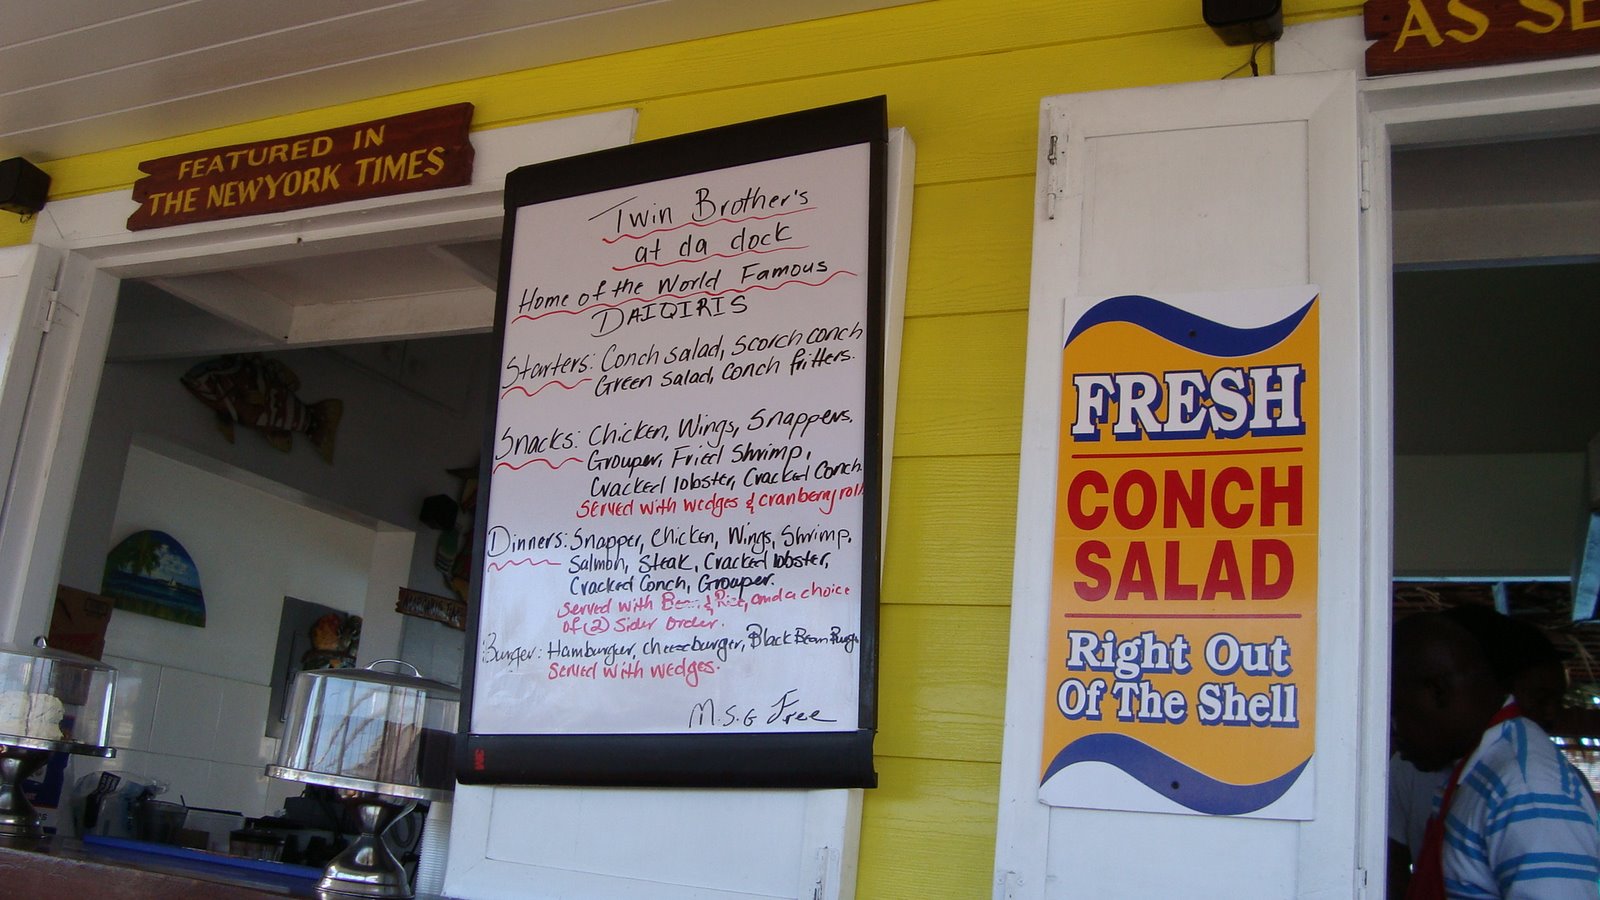 FEATURED IN
THE NEWYORK TIMES
Twin Brother's
at da dock
Home of the World Famous
DAIQIRIS
Starters: Conch salad, Scorch conch
Green salad, Conch fritters.
Snacks: Chicken, Wings, Snappers.
Grouper, Fried Shrimp,
Cracked lobster, Cracked Conch
Served with wedges & cranberry roll
Dinners: Snapper, Chicken, Wings, Shrimp,
Salmon, Steak, Cracked lobster,
Cracked Conch, Grouper.
Served with & Rice, and a choice
of (2) Sider Order.
Burger: Hamburger, cheeseburger, Black Bean
Served with wedges.
M.S.G Free
3M
AS SE
FRESH
CONCH
SALAD
Right Out
Of The Shell